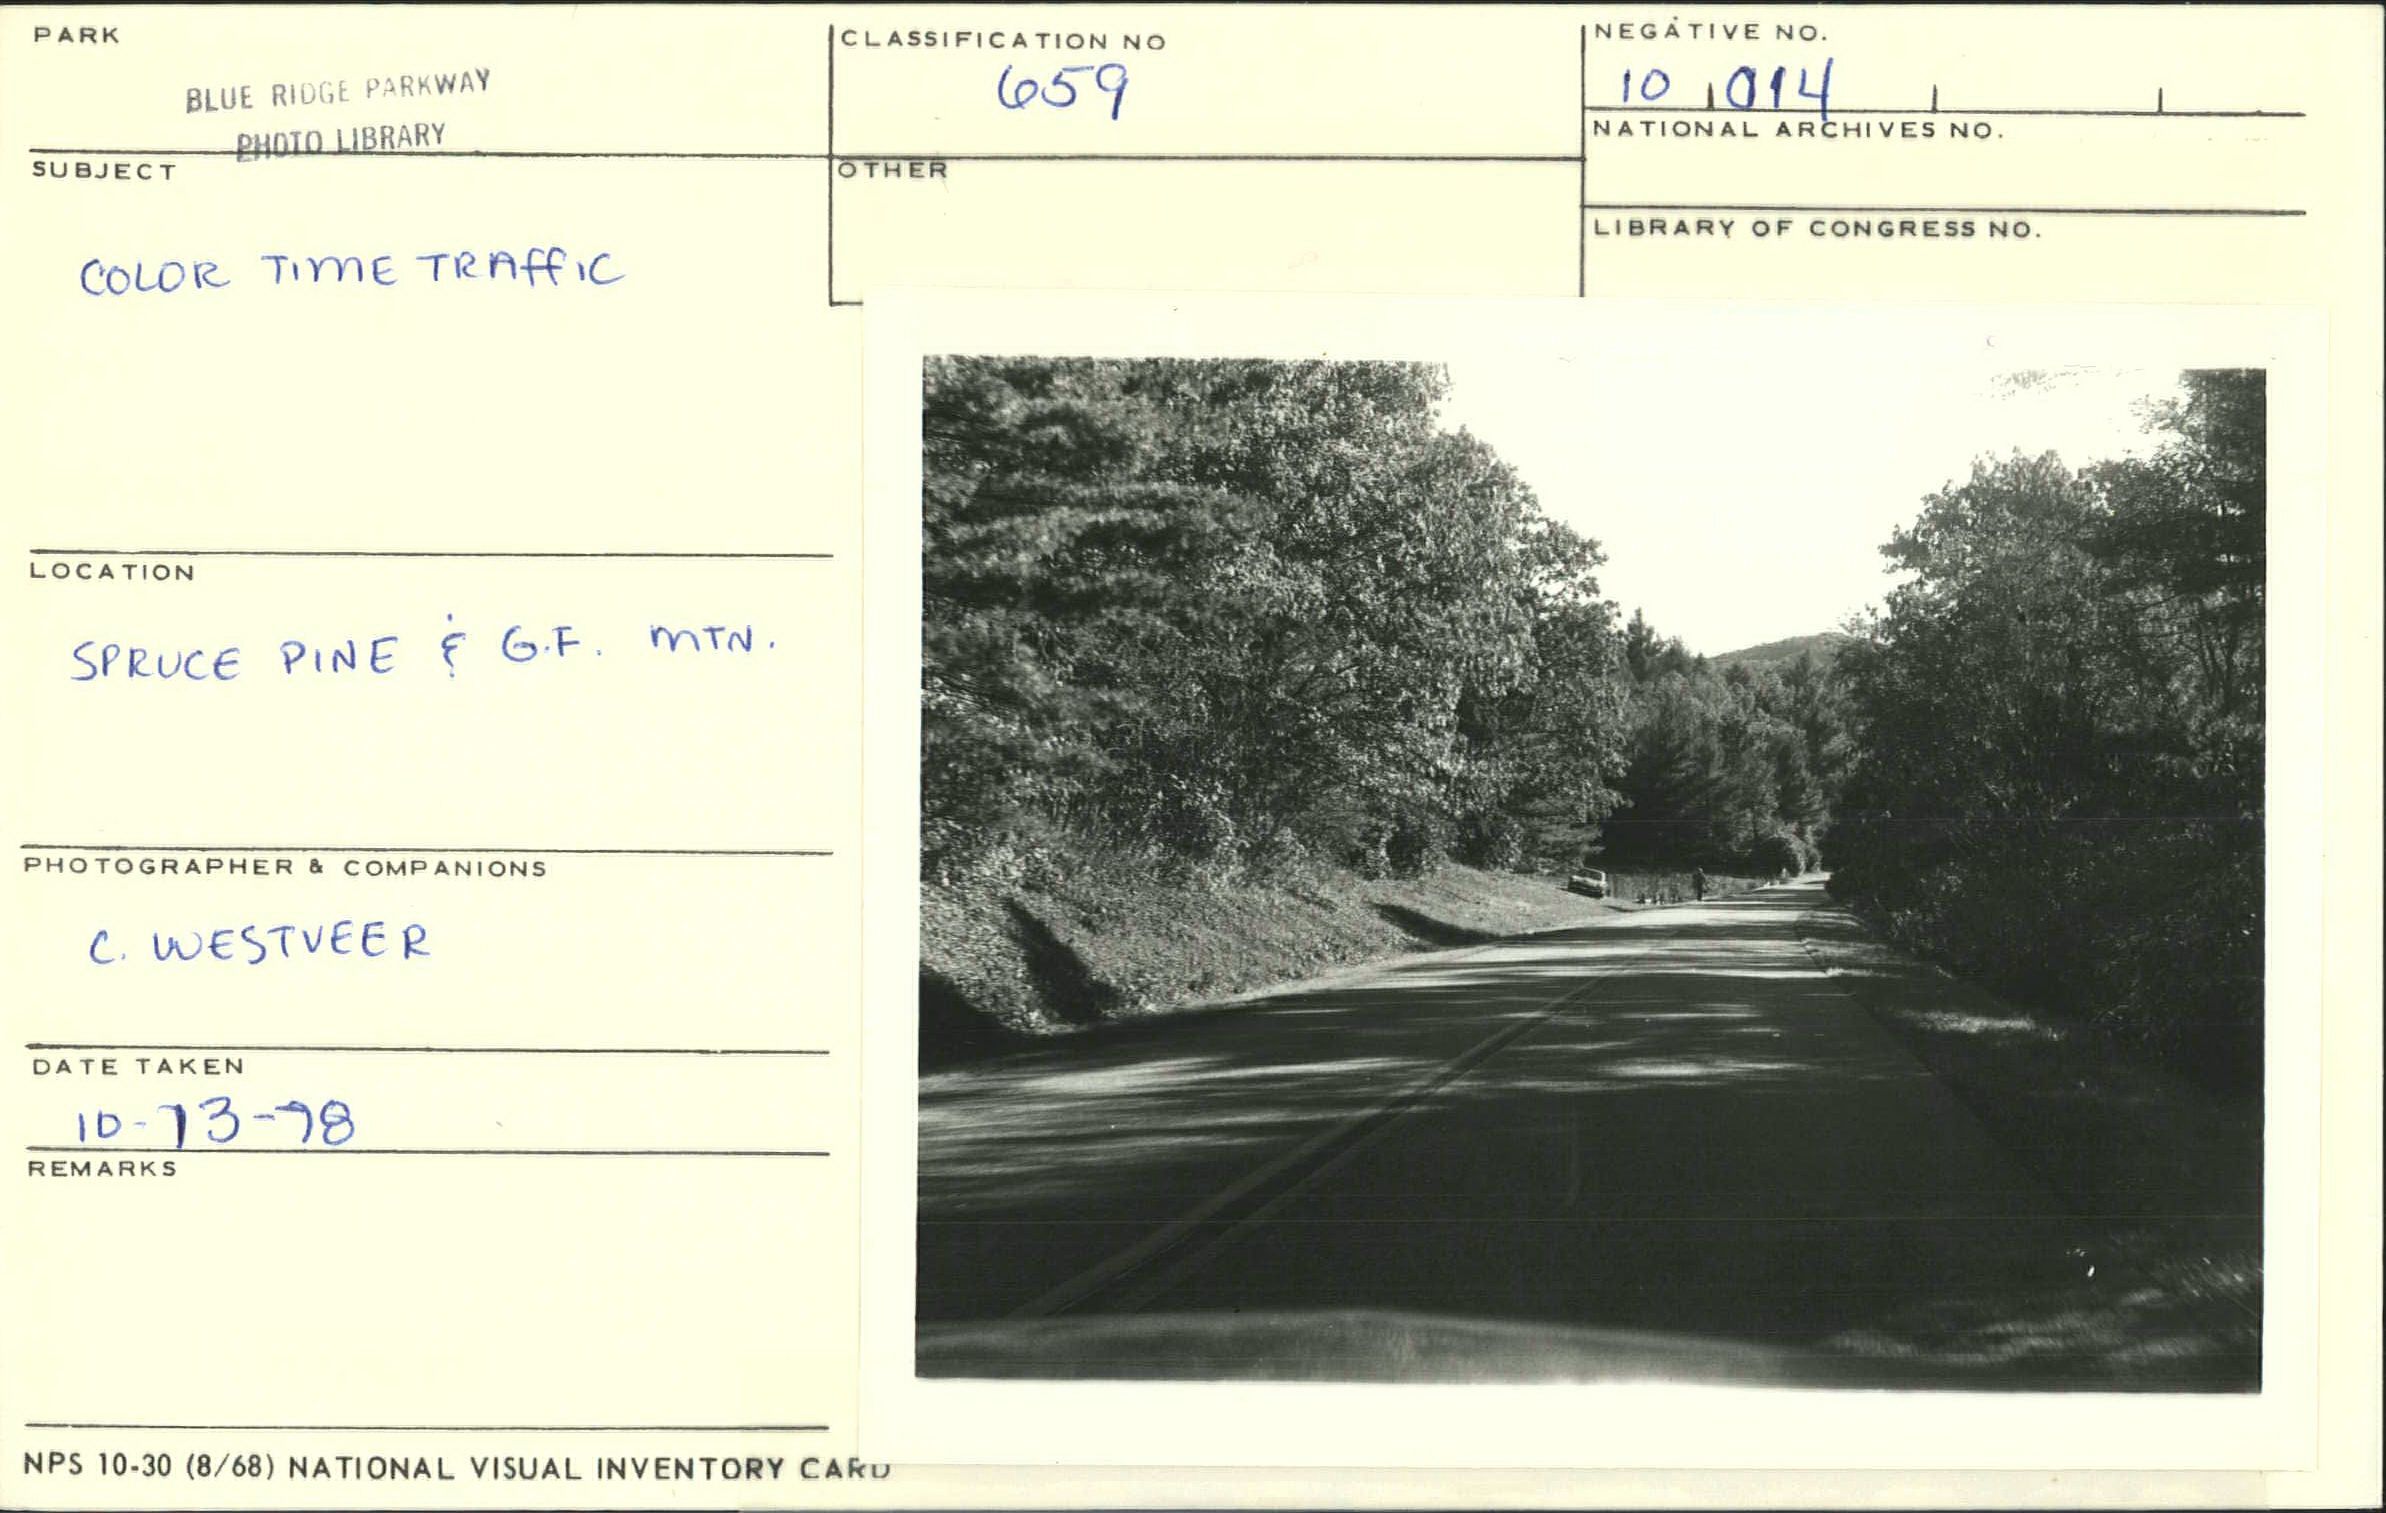 PARK
BLUE RIDGE PARKWAY
PHOTO LIBRARY
CLASSIFICATION NO
659
NEGATIVE NO.
10 014
NATIONAL ARCHIVES NO.
SUBJECT
COLOR TIME TRAFFIC
OTHER
LIBRARY OF CONGRESS NO.
LOCATION
SPRUCE PINE & G.F. MTN.
PHOTOGRAPHER & COMPANIONS
C. WESTVEER
DATE TAKEN
10-13-78
REMARKS
NPS 10-30 (8/68) NATIONAL VISUAL INVENTORY CARD